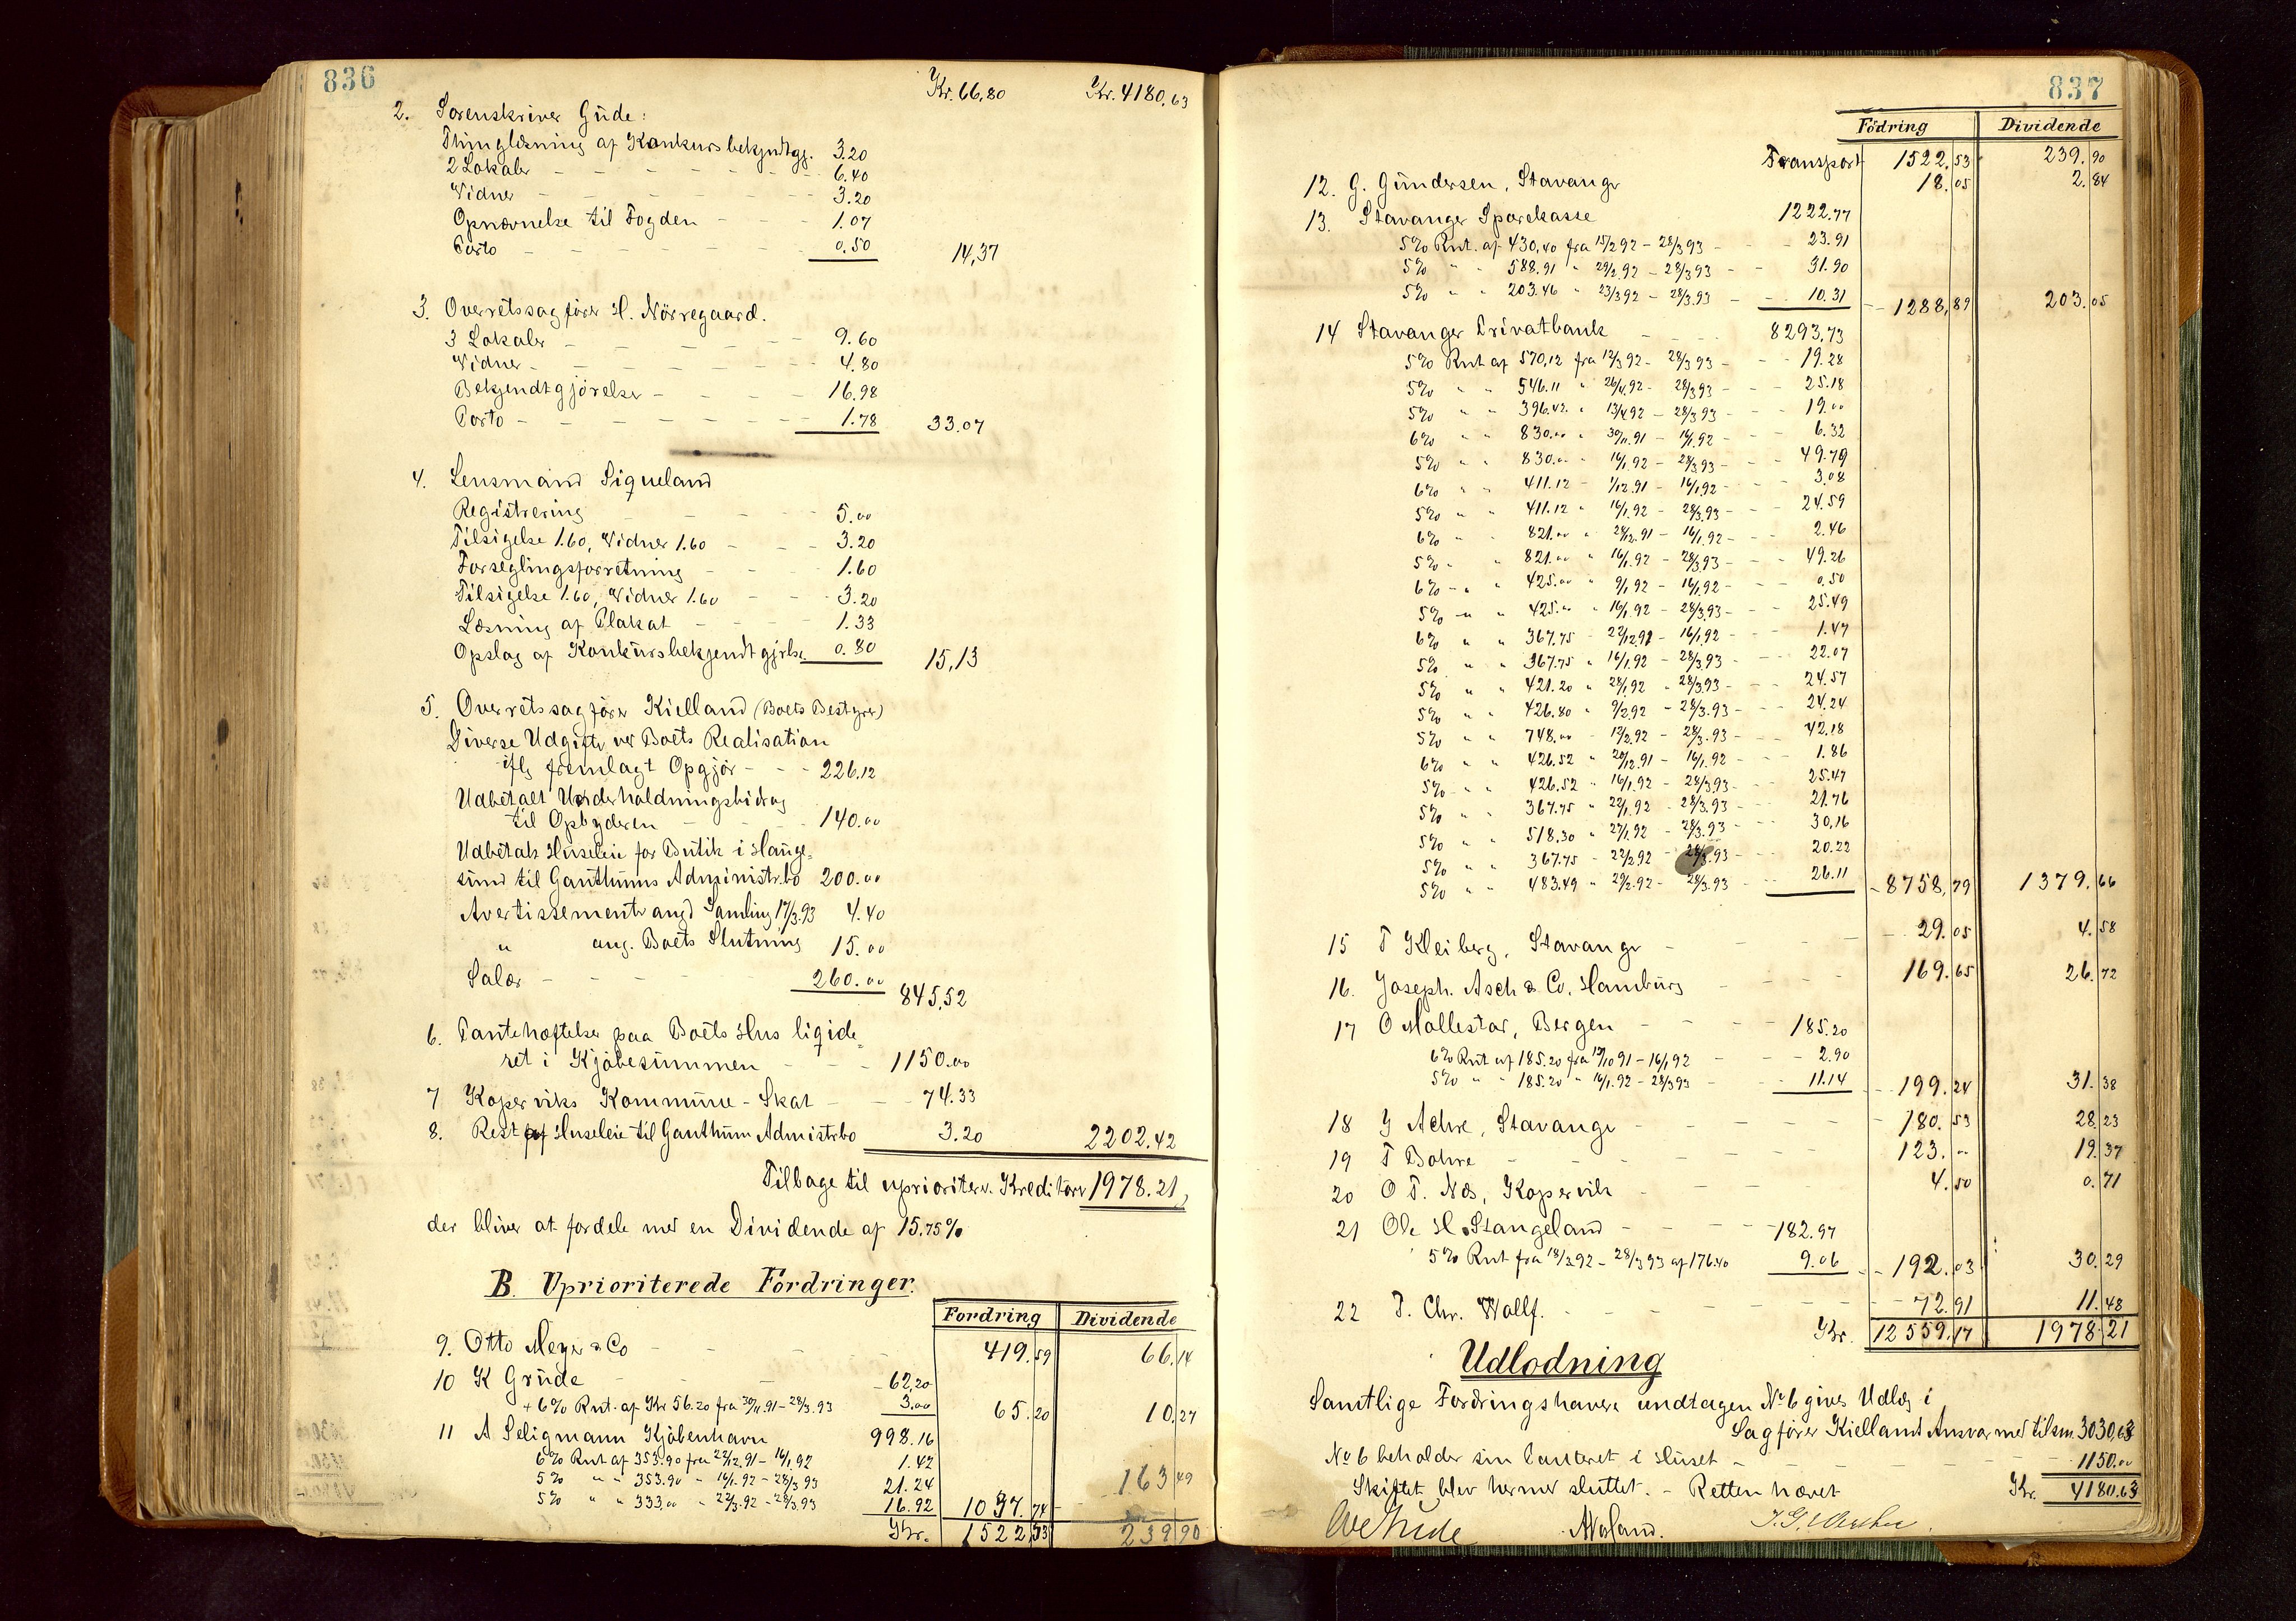 836
Kr. 66,80 Kr. 4180,63
2. Sorenskriver Gude:
Thinglæsning af Konkursbekjendtgj. 3.20
2 Lokaler - - - - - - 6.40
Vidner - - - - - - 3.20
Opnævnelse til Fogden - - - 1.07
Porto - - - - - - 0.50 14,37
3. Overretssagfører H. Nörregaard.
3 Lokaler - - - - - 9.60
Vidner - - - - - - 4.80
Bekjendtgjörelser - - - - 16.98
Porto - - - - - - - 1.78 33.07
4. Lensmand Siqueland
Registrering - - - - 5.00
Tilsigelse 1.60, Vidner 1.60 - - - 3.20
Forseglingsforretning - - - 1.60
Tilsigelse 1.60, Vidner 1.60 - - - 3.20
Læsning af Plakat - - - 1.33
Opslag af Konkursbekjendtgjörlse 0.80 15,13
5. Overretssagfører Kielland (Boets Bestyrer)
Diverse Udgifter ver Boets Realisation
iflg fremlagt Opgjör - - - 226.12
Udbetalt Underholdningsbidrag
til Opbyderen - - - 140.00
Udbetalt Husleie for Butik i Hauge-
sund til Ganthums Administr.bo 200.00
Avertissement angd Samling 17/3.93 4.40
" ang. Boets Slutning 15.00
Salær - - - - - 260.00 845,52
6. Pantehæftelse paa Boets Hus liqide-
ret i Kjöbesummen - - - 1150.00
7 Koperviks Kommune-Skat - - - 74.33
8. Rest af Husleie til Ganthum Admistrbo 3.20 2202.42
Tilbage til uprioriterv. Kreditorer 1978.21,
der bliver at fordele med en Dividende af 15.75%
B. Uprioriterede Fordringer.
Fordring Dividende
9. Otto Meyer & Co - - - - - 419.59 66.14
10 K Grude - - - - 62,20
+ 6% Rnt. af Kr 56.20 fra 30/11.91 - 28/3.93 3.00 65.20 10.27
11 A Seligmann Kjöbenhavn 998.16
6% Rnt af 353.90 fra 22/12.91 - 16/1.92 1.42
5% " " 353.90 " 16/1.92 - 28/3 93 21.24
5% " " 333,00 " 22/3.92 - 28/3.93 16.92 1037.74 163.49
Kr. 1522.53 239.90
837
Fodring Dividende
Transport 1522.53 239.90
12. G. Gundersen, Stavanger 18.05 2.84
13. Stavanger Sparekasse 1222.77
5% Rnt. af 430,40 fra 15/2 92 - 28/3 93 - - - 23.91
5% " " 588.91 " 29/2.92 - 28/3 93 - - 31.90
5% " " 203.46 " 23/3 92 - 28/3.93 - - 10.31 - 1288,89 203.05
14 Stavanger Privatbank - - - 8293,73
5% Rnt af 570,12 fra 12/3 92 - 28/3 93 - - - 19.28
5% " " 546.11 " 26/4.92 - 28/3 93 - - - 25.18
5% " " 396.42 " 13/4 92 - 28/3 93 - - - 19.00
6% " " 830.00 " 30/11.91 - 16/1.92 - - 6.32
5% " " 830.00 " 16/1.92 - 28/3.93 - - - 49.79
6% " " 411.12 - 1/12.91 - 16/1 92 - - 3.08
5% " " 411.12 " 16/1.92 - 28/3.93 - - - 24.59
6% " " 821.00 " 28/12.91 - 16/1.92 - - - 2.46
5% " " 821.00 " 16/1.92 - 28/3.93 - - - 49.26
6% - " 425.00 " 9/1.92 - 16/1.92 - - - 0.50
5% - " " 425.00 " 16/1.92 - 28/3.93 - - - 25.49
6% " " 367.75 - 22/12.91 - 16/1.92 - - - 1.47
5% " " 367.75 " 16/1.92 - 28/3.93 - - - 22.07
5% " " 421.20 " 28/1.92 " 28/3.93 - - - 24.57
5% " " 426.80 " 9/2.92 - 28/3.93 - - - 24.24
5% " " 748.00 - 12/2.92 - 28/3.93 - - - 42.18
6% " " 426.52 " 20/12.91 - 16/1.92 - - - 1.86
5% - " 426.52 " 16/1.92 - 28/3.93 - - - 25.47
5% " " 367.75 " 22/1.92 - 28/3.93 - - - 21.76
5% " " 518.30 " 27/1.92 - 28/3.93 - - - 30,16
5% " " 367.75 - 22/2.92 - 28/3.93 - - - 20.22
5% " " 483.49 " 29/2.92 - 28/3.93 - - 26.11 - 8758,79 1379.66
15 T Kleiberg, Stavanger - - - - 29.05 4.58
16. Joseph. Asch & Co, Hamburg - - - - 169.65 26.72
17 O Mollestar, Bergen - - - - 185.20
6% Rnt af 185.20 fra 12/10 91 - 16/1 92 - - 2.90
5% " " 185.20 " 16/1.92 - 28/3 93 - - 11.14 - 199.24 31.38
18 J Achre, Stavanger - - - - - 180.53 28.23
19 T Bohre - - - - - - 123.- 19.37
20 O T. Næs, Kopervik - - - - 4.50 0.71
21 Ole H. Stangeland - - - - 182.97
5% Rnt fra 18/3.92 - 28/3 93 af 176.40 9.06 - 192.03 30.29
22 P. Chr. Wallf. - - - - - - 72.91 11.48
Kr. 12559.17 1978.21
Udlodning
Samtlige Fordringshavere undtagen No 6 gives Udlæg i
Sagfører Kiellands Ansvar med tilsm. 3030,63
No 6 beholder sin Panteret i Huset - - - - - 1150.00
Skiftet blev hermed sluttet. - Retten hævet Kr. 4180.63